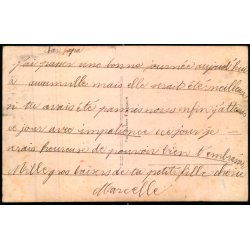 Cher papa
J'ai passer une bonne journée aujourd'hui
à aumanville mais elle serait été meilleure
si tu avais été parmis nous enfin j'attens
ce jour avec impatience ce jour je
serais heureuse de pouvoir bien t'embrasser
Mille gros baisers de ta petite fille chérie
Marcelle